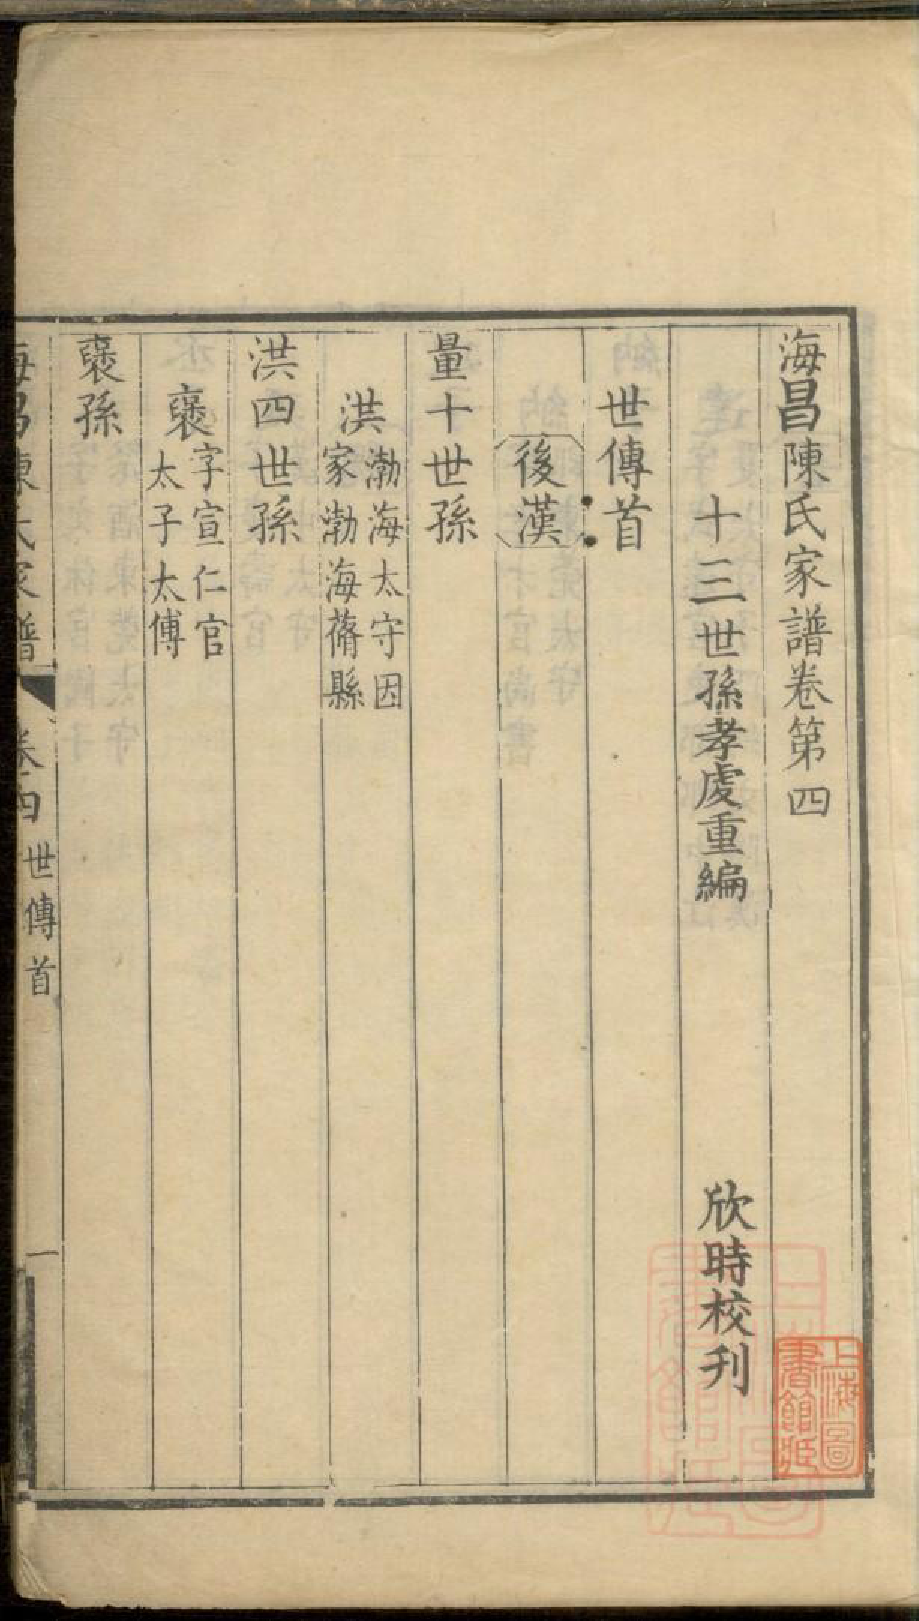 海昌陳氏家譜卷第四
十三世孫孝虔重編　欣時校刋
世傳首
後漢
量十世孫
洪 渤海太守因
家渤海蓨縣
洪四世孫
襃 字宣仁官
太子太傅
襃孫
海昌陳氏家譜 卷四 世傳首 一
上海圖
書館藏